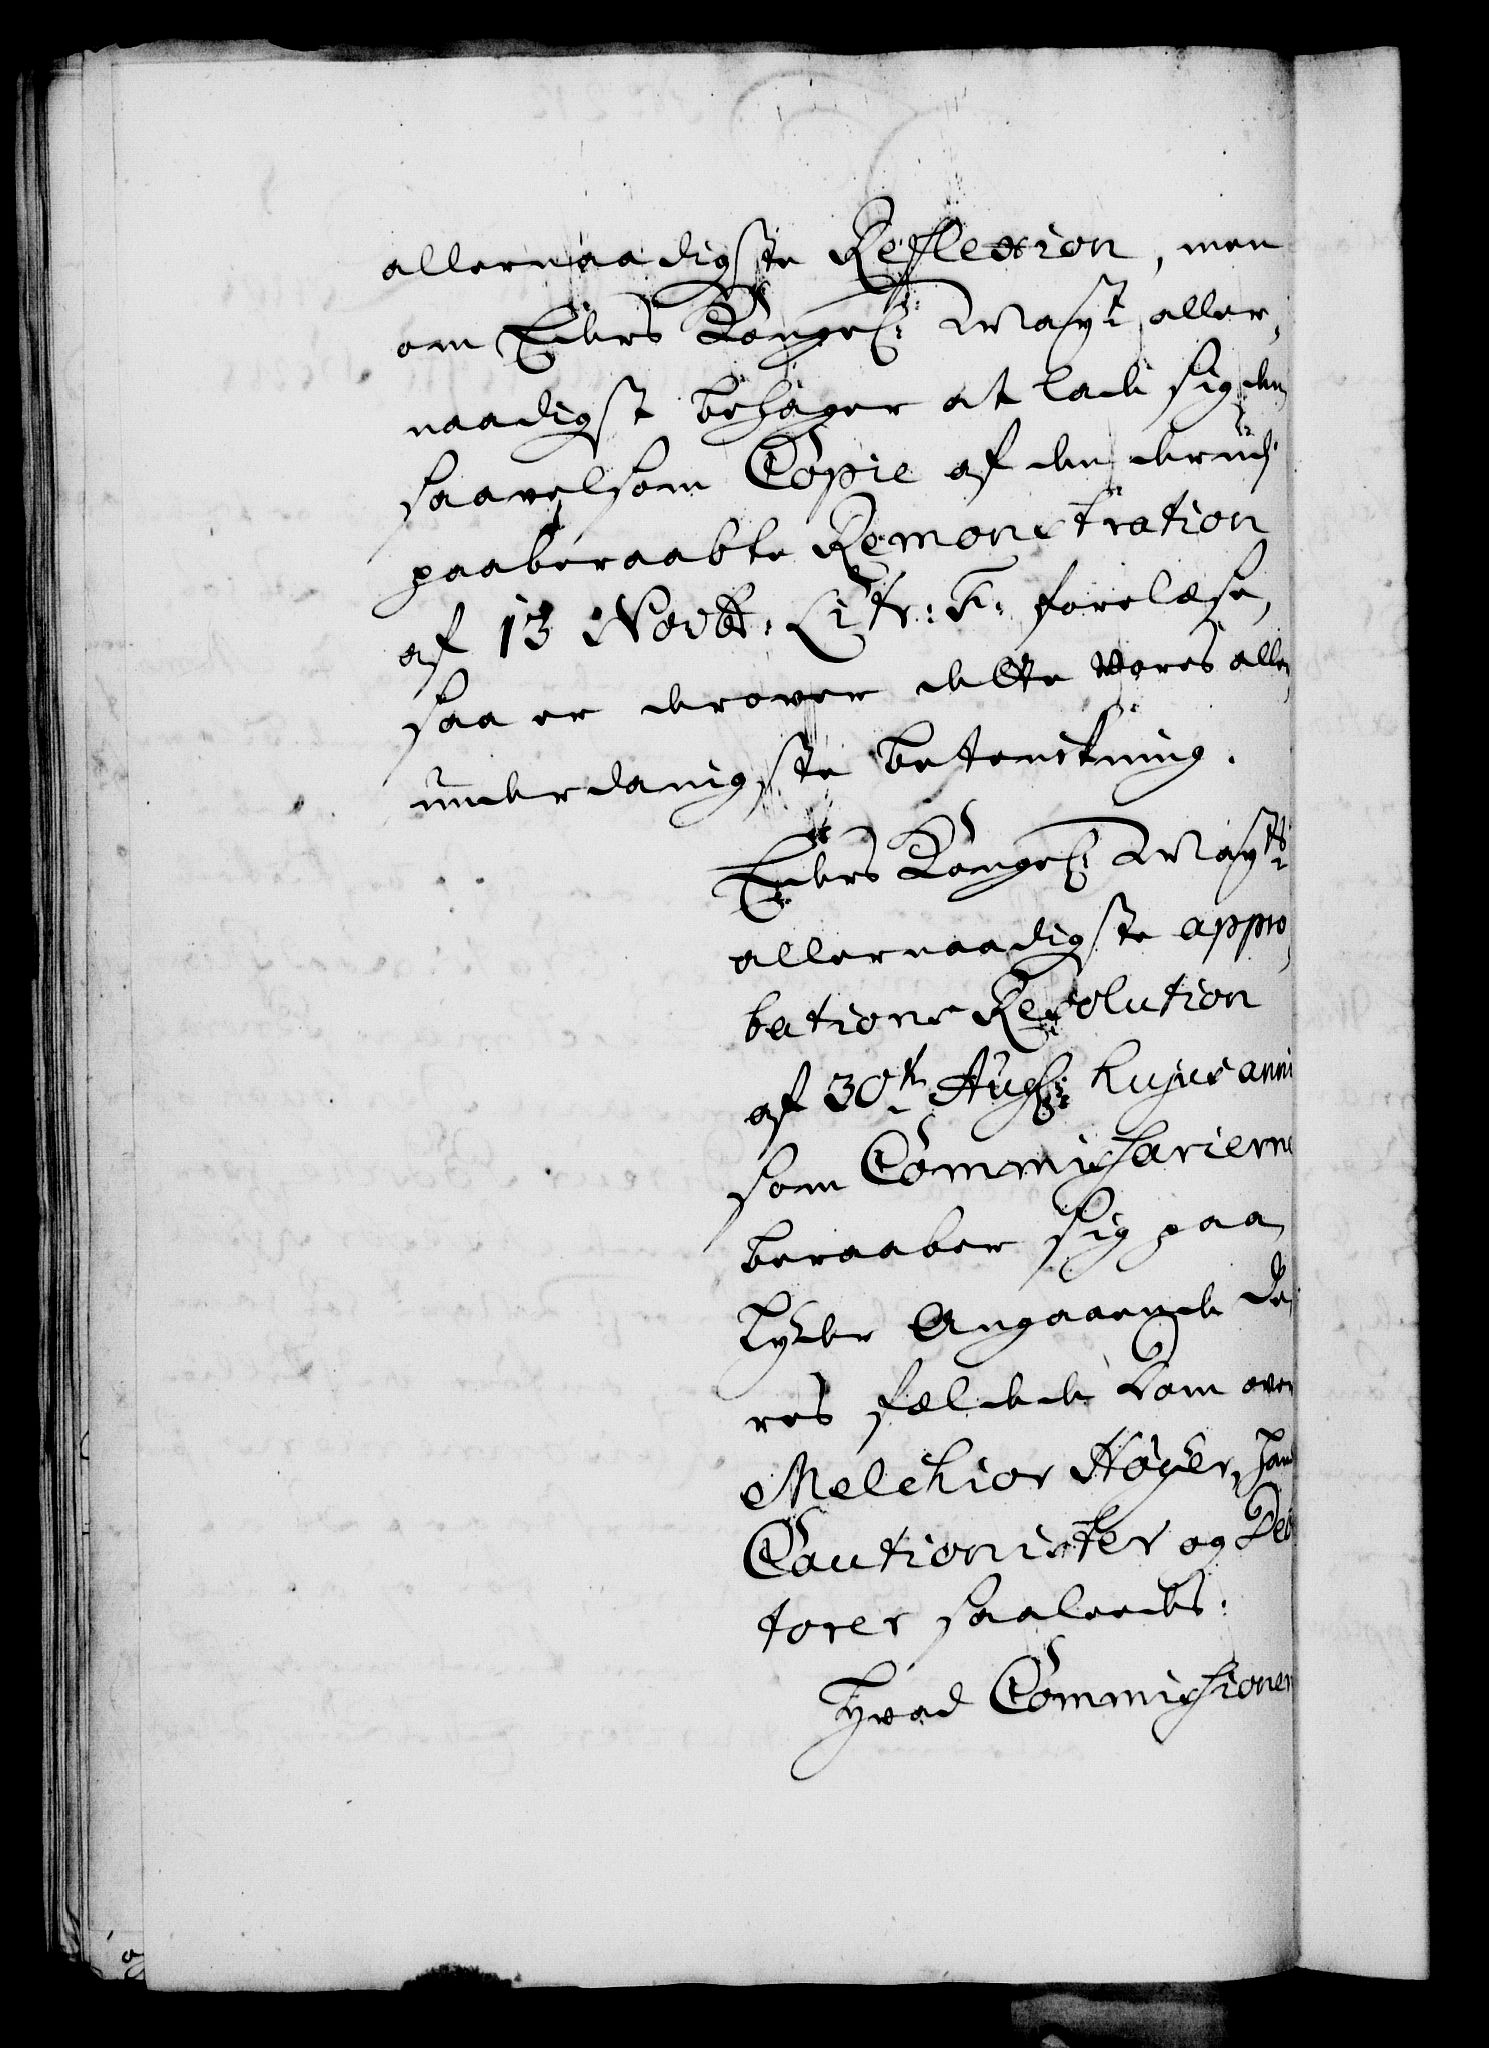 allernaadigste Reflexion, men
om Eders Kongel: Mayt. aller,
naadigst behager at lade sig den
saavelsom Copie af den derudj
paaberaabte Remonstration
af 13 Novbr: Litr: F: forelæse,
saa er derover dette vores aller,
underdanigste betenckning.
Eders Kongel: Mayts
allernaadigste appro,
bations Resolution
af 30te Aug: hujus anni
som Commissarierne
beraaber sig paa
lyder Angaaende De,
res fældede Dom over
Melchior Høyer, hans
Cautionister og Debi
torer saaledes:
Hvad Commissionen